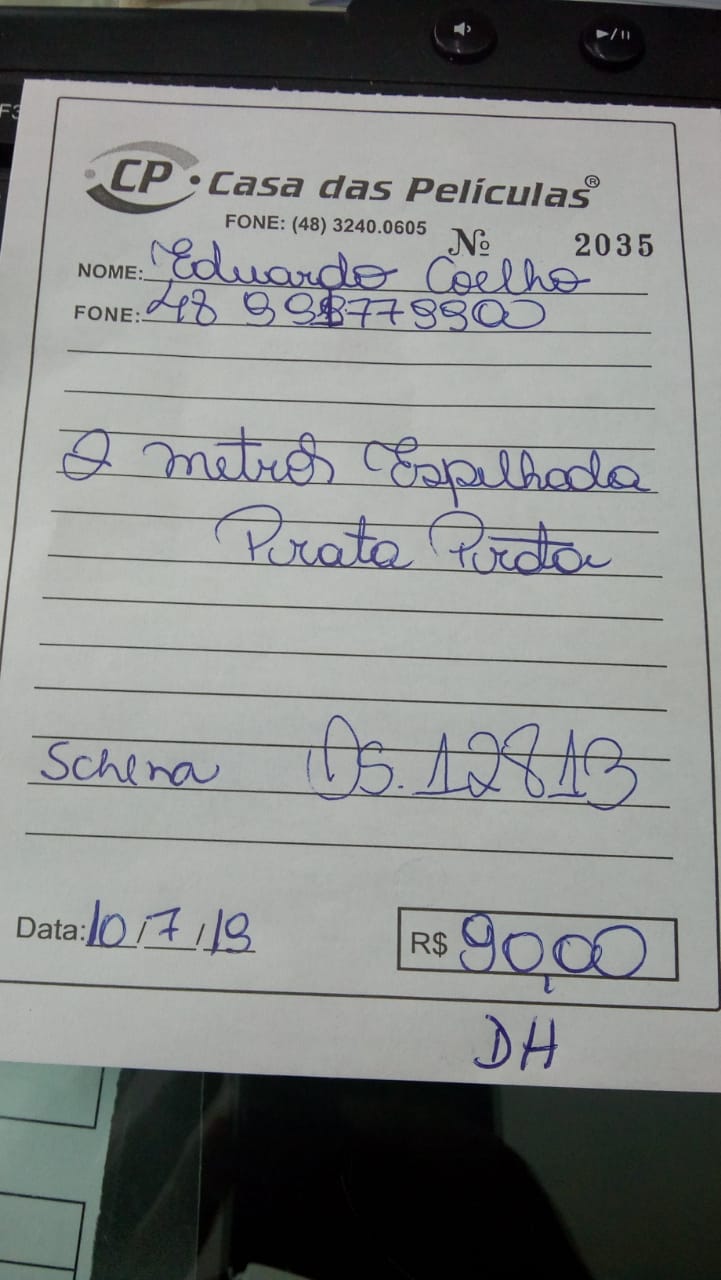 F3
CP • Casa das Películas®
FONE: (48) 3240.0605 Nº 2035
NOME: Eduardo Coelho
FONE: 48 998779900
2 metros Espelhada
Prata
Schena Os. 12813
Data: 10/7/19 R$ 90,00
DH